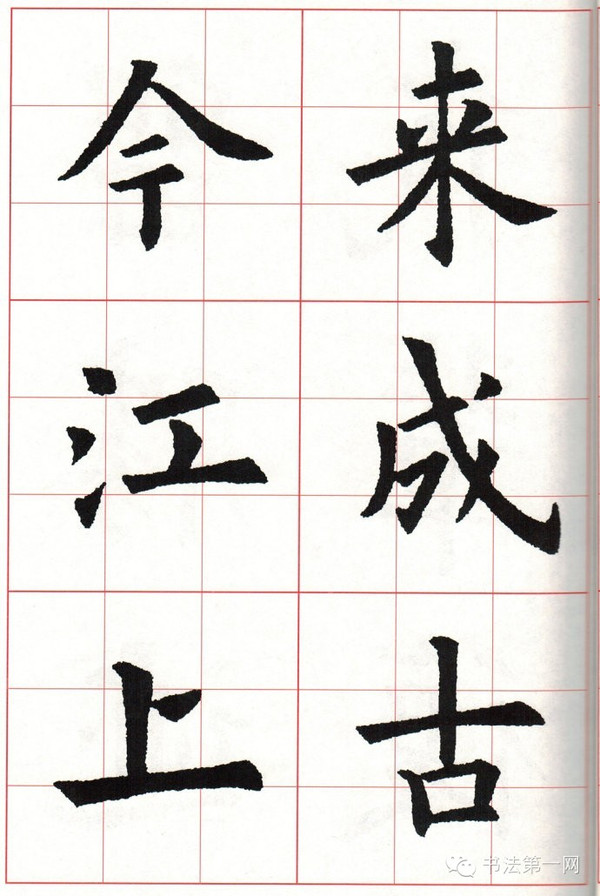 来成古
今江上
书法第一网